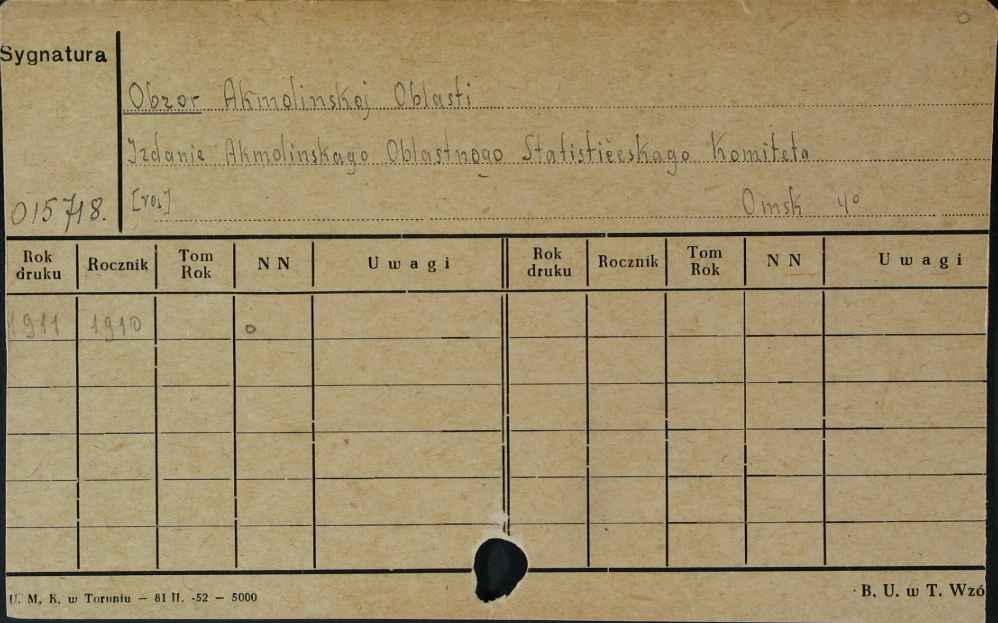 Sygnatura
Obzor Akmolinskoj Oblasti
Izdanie Akmolinskago Oblastnogo Statističeskago Komiteta
015718. [ros] Omsk 4°
Rok druku Rocznik Tom Rok N N Uwagi Rok druku Rocznik Tom Rok N N Uwagi
1911 1910 o
U. M. K. w Toruniu — 81 II. -52 — 5000
B. U. w T. Wzó